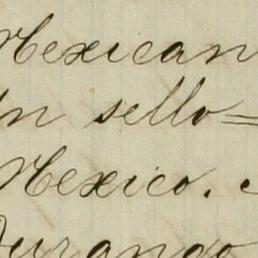 Mexican
un sello=
Mexico.
Durango